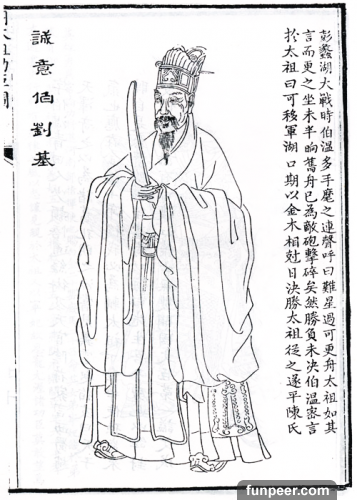 彭蠡湖大戰時伯溫多手麾之連聲呼曰難星過可更舟太祖如其
言而更之坐未半晌舊舟已為敵砲擊碎矣然勝負未決伯溫密言
於太祖曰可移軍湖口期以金木相尅日決勝太祖從之遂平陳氏
誠意伯劉基
funpeer.com